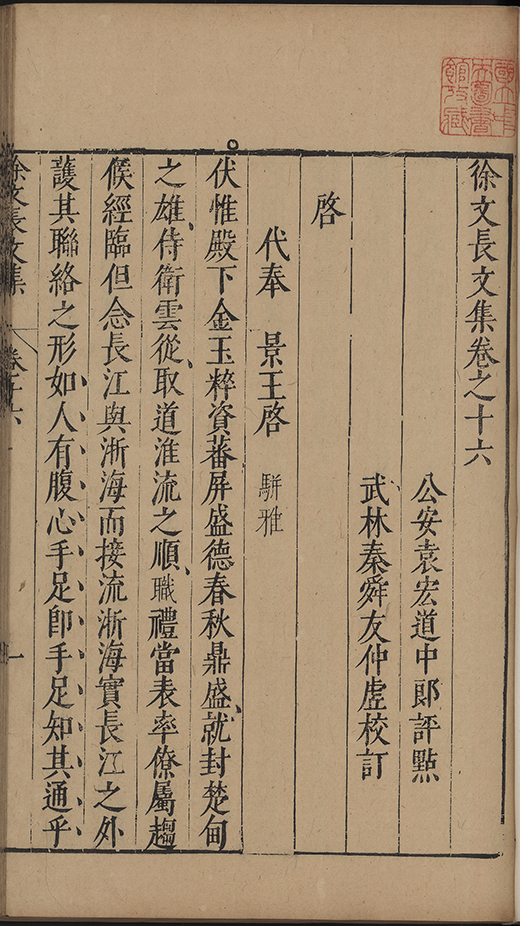 徐文長文集卷之十六
公安袁宏道中郎評點
武林秦舜友仲虛校訂
啓
代奉　景王啓 駢雅
伏惟殿下金玉粹資蕃屏盛德春秋鼎盛、就封楚甸
之雄、侍衛雲從、取道淮流之順、職禮當表率僚屬趨
候經臨但念長江與浙海而接流浙海實長江之外
護其聯絡之形如人有腹心手足卽手足知其通乎
徐文長文集
卷十六
一